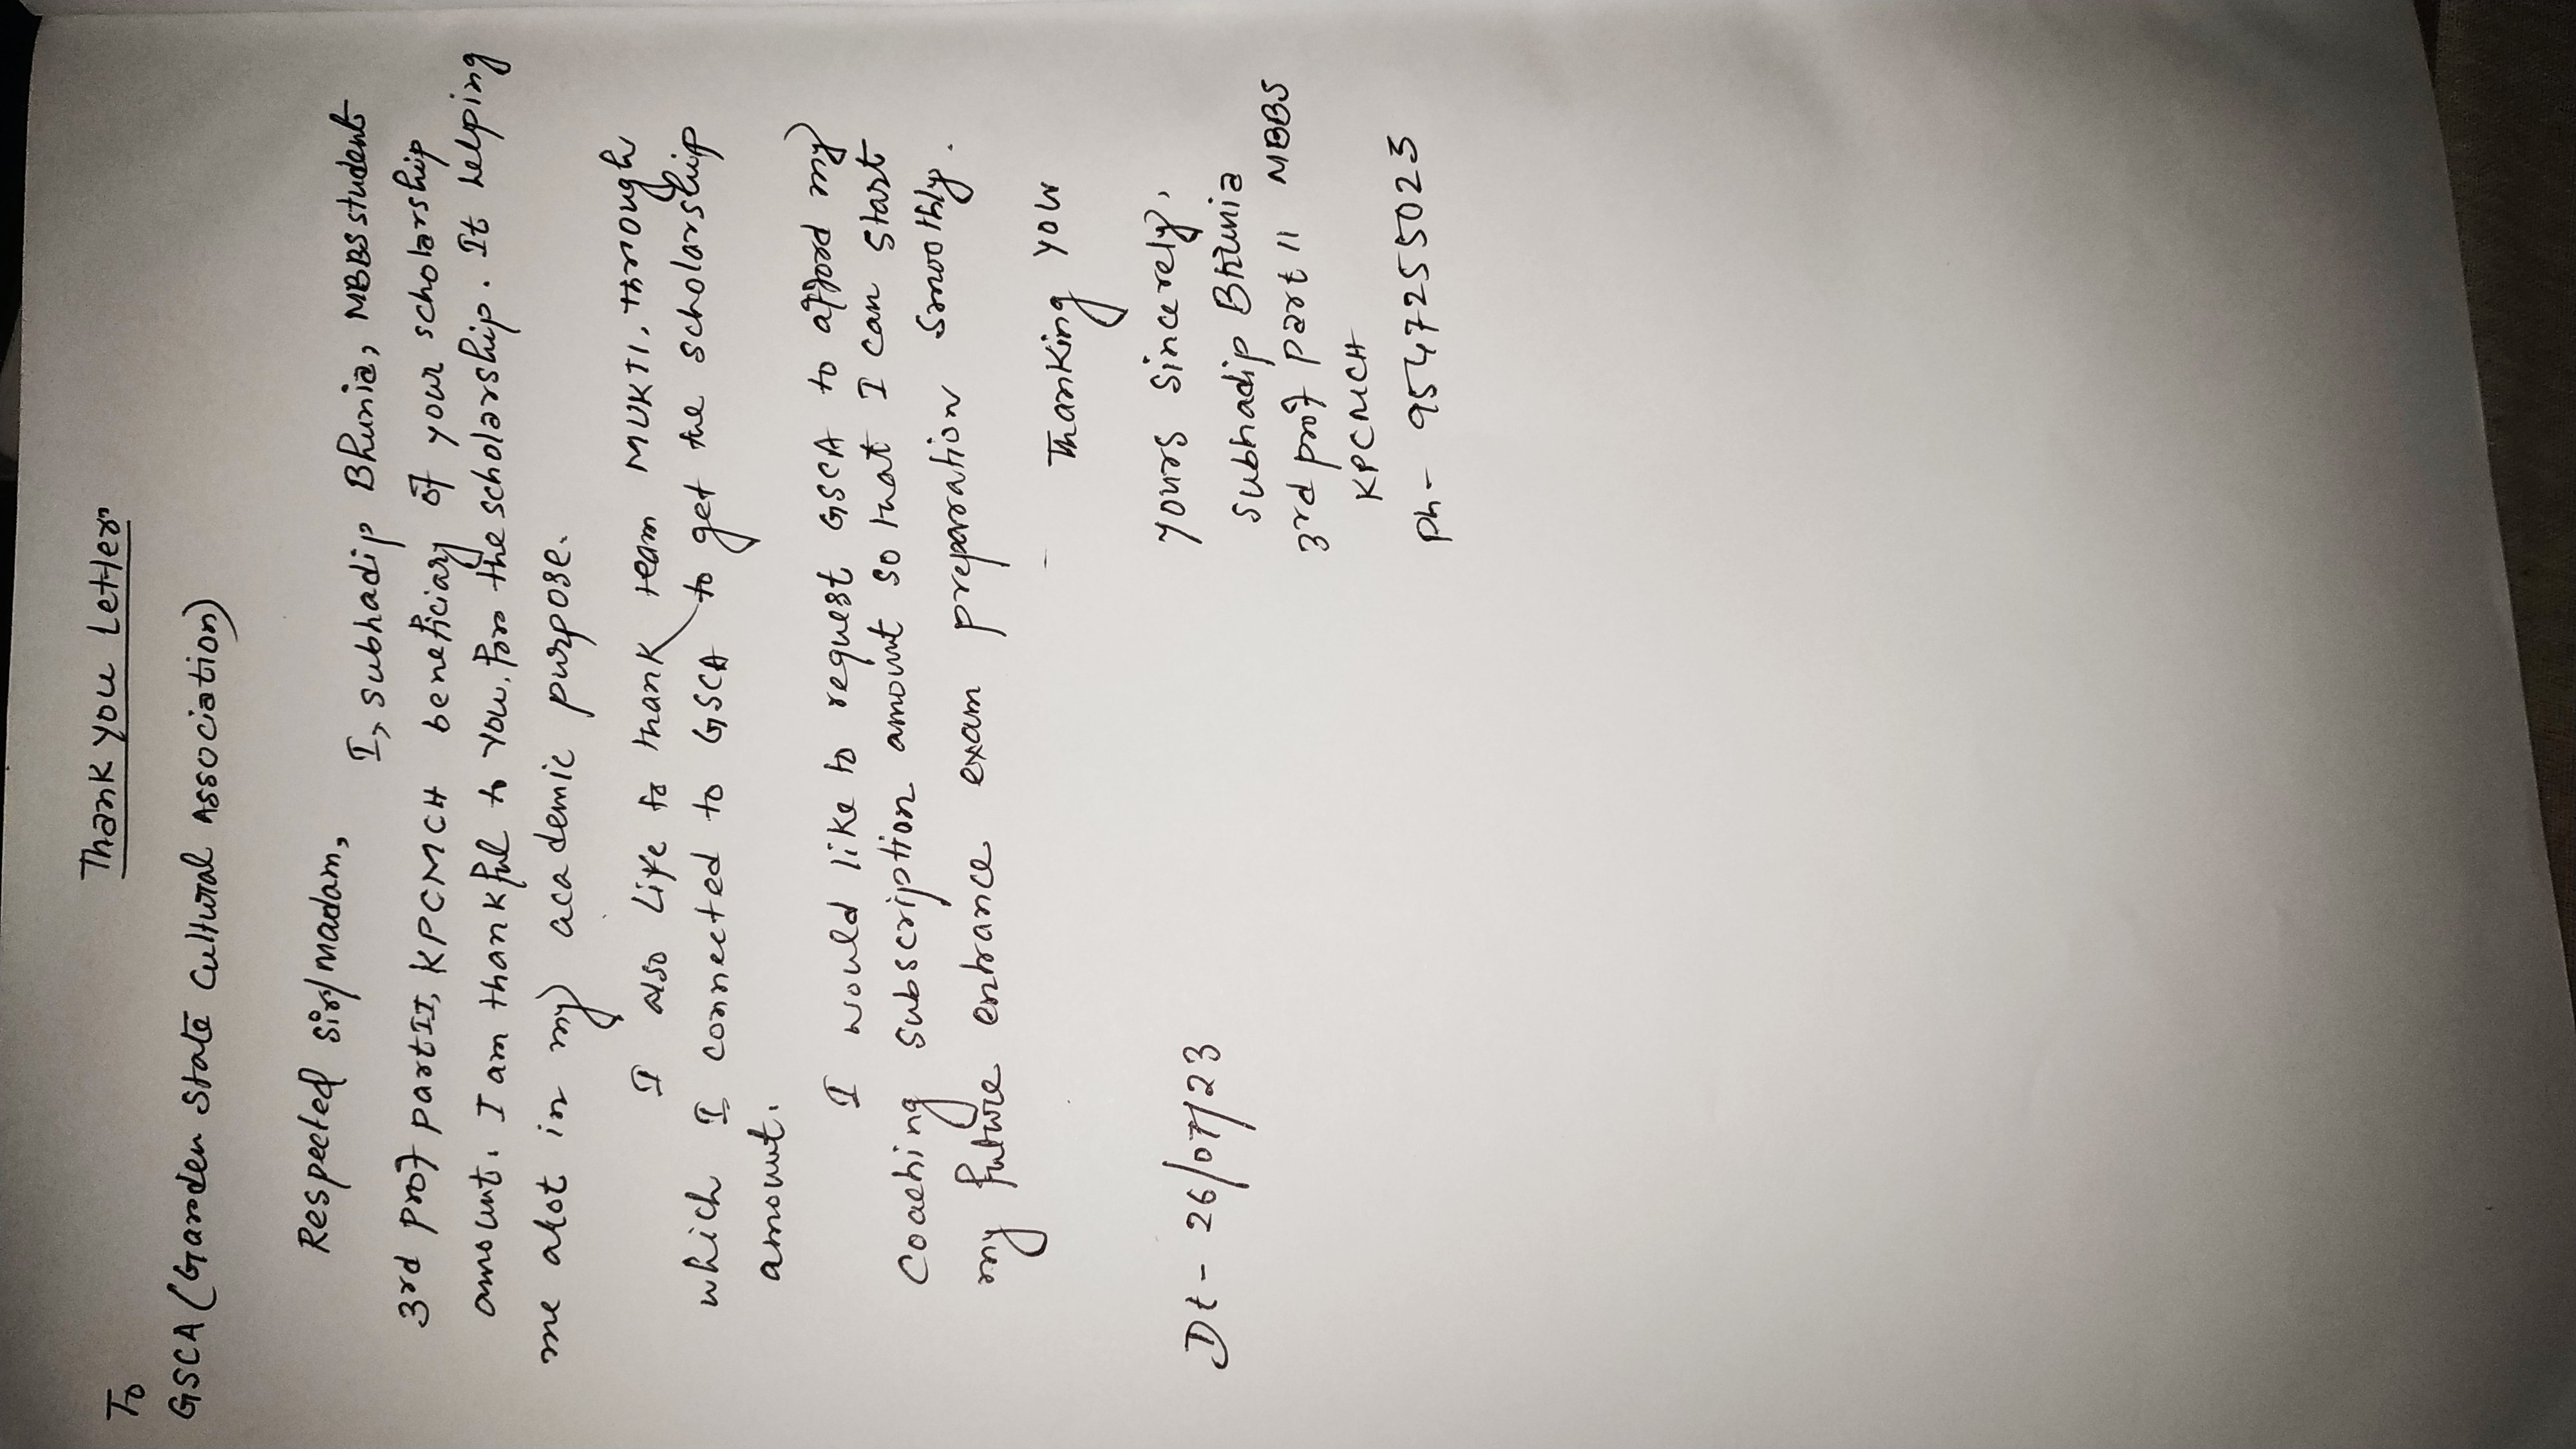 Thank you Letter
To
GSCA (Garden State Cultural Association)
Respected Sir/Madam,
I, Subhadip Bhunia, MBBS student
3rd prof part II, KPCMCH beneficiary of your scholarship
amount. I am thankful to you, for the scholarship. It helping
me alot in my academic purpose.
I also Like to thank team MUKTI, through
which I connected to GSCA to get the scholarship
amount.
I would like to request GSCA to afford my
Coaching subscription amount so that I can start
my future entrance exam preparation smoothly.
Thanking you
Dt - 26/07/23
yours sincerely,
Subhadip Bhunia
3rd prof part II MBBS
KPCMCH
Ph - 9547255023